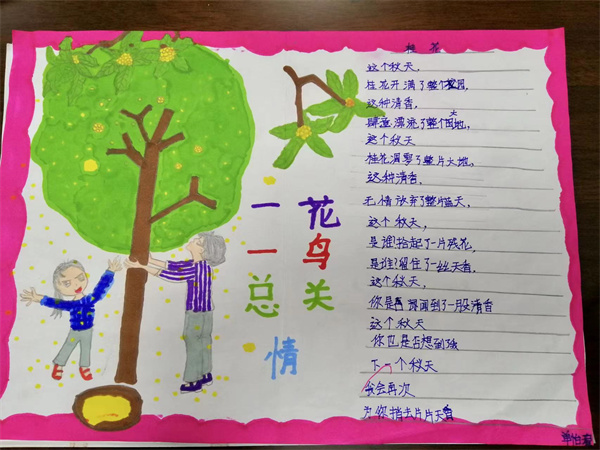 桂花
这个秋天，
桂花开满了整个校园，
这种清香，
肆意漂流了整个大地，
这个秋天
桂花凋零了整片大地，
这种清香，
无情放弃了整个蓝天，
这个秋天，
是谁拾起了一片残花，
是谁留住了一丝天香，
这个秋天，
你是否闻到了一股清香
这个秋天
你也是否想到我
下一个秋天
我会再次
为你拾去片片天香
一花
一鸟
总关
情
单怡